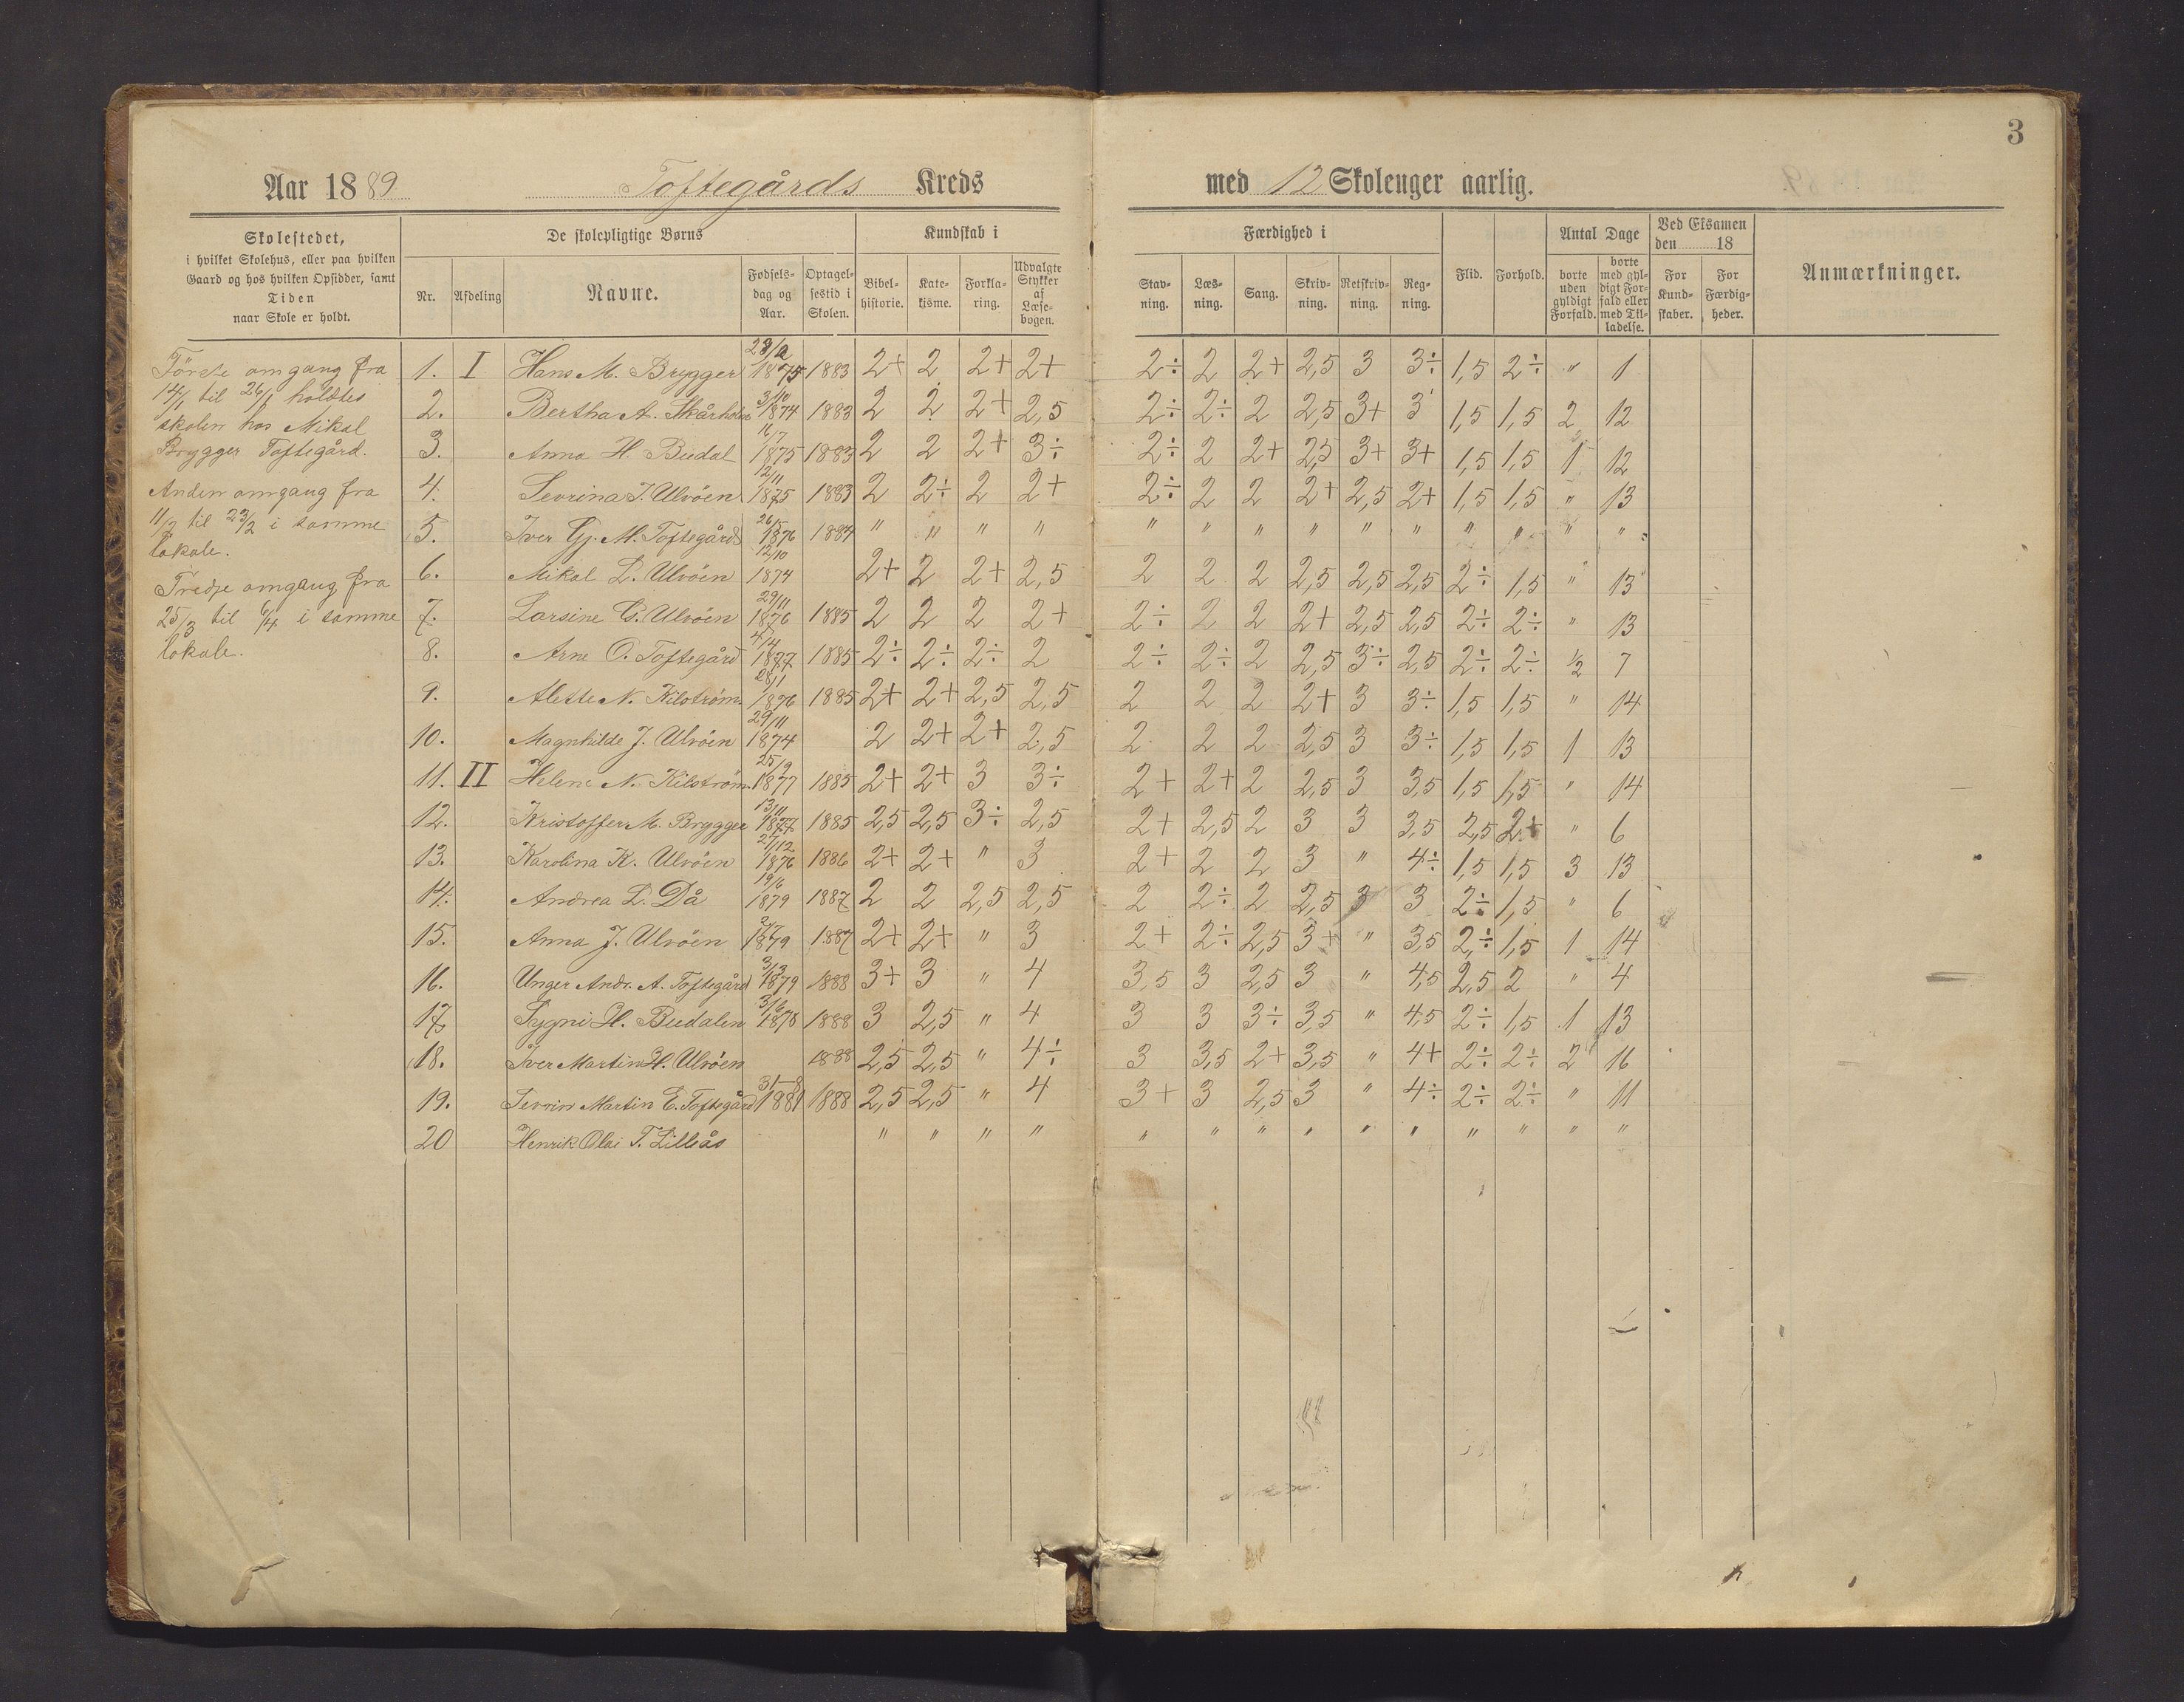 3
Aar 1889 Toftegårds Kreds med 12 Skoleuger aarlig.
Skolestedet,
i hvilket Skolehus, eller paa hvilken
Gaard og hos hvilken Opsidder, samt
Tiden
naar Skole er holdt.
De skolepligtige Børns
Nr. Afdeling Navne. Fødsels-dag og Aar. Optagel-sestid i Skolen.
Kundskab i
Bibel-historie. Kate-kisme. Forkla-ring. Udvalgte Stykker af Læse-bogen.
Færdighed i
Stav-ning. Læs-ning. Sang. Skriv-ning. Retskriv-ning. Reg-ning.
Flid. Forhold.
Antal Dage
borte uden gyldigt Forfald. borte med gyl-digt For-fald eller med Til-ladelse.
Ved Eksamen
den 18
For Kund-skaber. For Færdig-heder.
Anmærkninger.
Förste omgang fra
14/1 til 26/1 holdtes
skolen hos Mikal
Brygger Toftegård.
Anden omgang fra
11/2 til 23/2 i samme
lokale.
Tredje omgang fra
25/3 til 6/4 i samme
lokale.
1. I Hans M. Brygger 1875 1883 2+ 2 2+ 2+ 2÷ 2 2+ 2,5 3 3÷ 1,5 2÷ " 1
2. Bertha A. Skårholm 3/10 1874 1883 2 2 2+ 2,5 2÷ 2÷ 2 2,5 3+ 3 1,5 1,5 2 12
3. Anna H. Buedal 16/7 1875 1883 2 2 2+ 3÷ 2÷ 2 2+ 2,5 3+ 3+ 1,5 1,5 1 12
4. Sevrina J. Ulvöen 12/11 1875 1883 2 2÷ 2 2+ 2÷ 2 2 2+ 2,5 2+ 1,5 1,5 " 13
5. Iver Gj. M. Toftegård 26/5 1876 1884 " " " " " " " " " " " " " "
6. Mikal L. Ulvöen 12/10 1874 2+ 2 2+ 2,5 2 2 2 2,5 2,5 2,5 2÷ 1,5 " 13
7. Larsine G. Ulvöen 29/11 1876 1885 2 2 2 2+ 2÷ 2 2 2+ 2,5 2,5 2÷ 2÷ " 13
8. Arne O. Toftegård 4/4 1877 1885 2÷ 2÷ 2÷ 2 2÷ 2÷ 2 2,5 3÷ 2,5 2÷ 2÷ 1/2 7
9. Alette N. Kilström 28/1 1876 1885 2+ 2+ 2,5 2,5 2 2 2 2+ 3 3÷ 1,5 1,5 " 14
10. Magnhilde J. Ulvöen 29/11 1874 2 2+ 2+ 2,5 2 2 2 2,5 3 3÷ 1,5 1,5 1 13
11. II Helene N. Kilström 25/9 1877 1885 2+ 2+ 3 3÷ 2+ 2+ 2 2,5 3 3,5 1,5 1,5 " 14
12. Kristoffer M. Brygger 13/11 1877 1885 2,5 2,5 3÷ 2,5 2+ 2,5 2 3 3 3,5 2,5 2+ " 6
13. Karolina K. Ulvöen 27/12 1876 1886 2+ 2+ " 3 2+ 2 2 3 " 4÷ 1,5 1,5 3 13
14. Andrea L. Då 19/6 1879 1887 2 2 2,5 2,5 2 2÷ 2 2,5 3 3 2÷ 1,5 " 6
15. Anna J. Ulvöen 1879 1887 2+ 2+ " 3 2+ 2÷ 2,5 3+ " 3,5 2÷ 1,5 1 14
16. Unger Andr. A. Toftegård 3/3 1879 1888 3+ 3 " 4 3,5 3 2,5 3 " 4,5 2,5 2 " 4
17. Sygni H. Buedalen 3/6 1878 1888 3 2,5 " 4 3 3 3÷ 3,5 " 4,5 2÷ 1,5 1 13
18. Iver Martin H. Ulvöen 1888 2,5 2,5 " 4÷ 3 3,5 2+ 3,5 " 4+ 2÷ 2÷ 2 16
19. Sevrin Martin E. Toftegård 31-8 1881 1888 2,5 2,5 " 4 3+ 3 2,5 3 " 4÷ 2÷ 2÷ " 11
20 Henrik Olai T. Lilleås " " " " " " " " " " " " " "